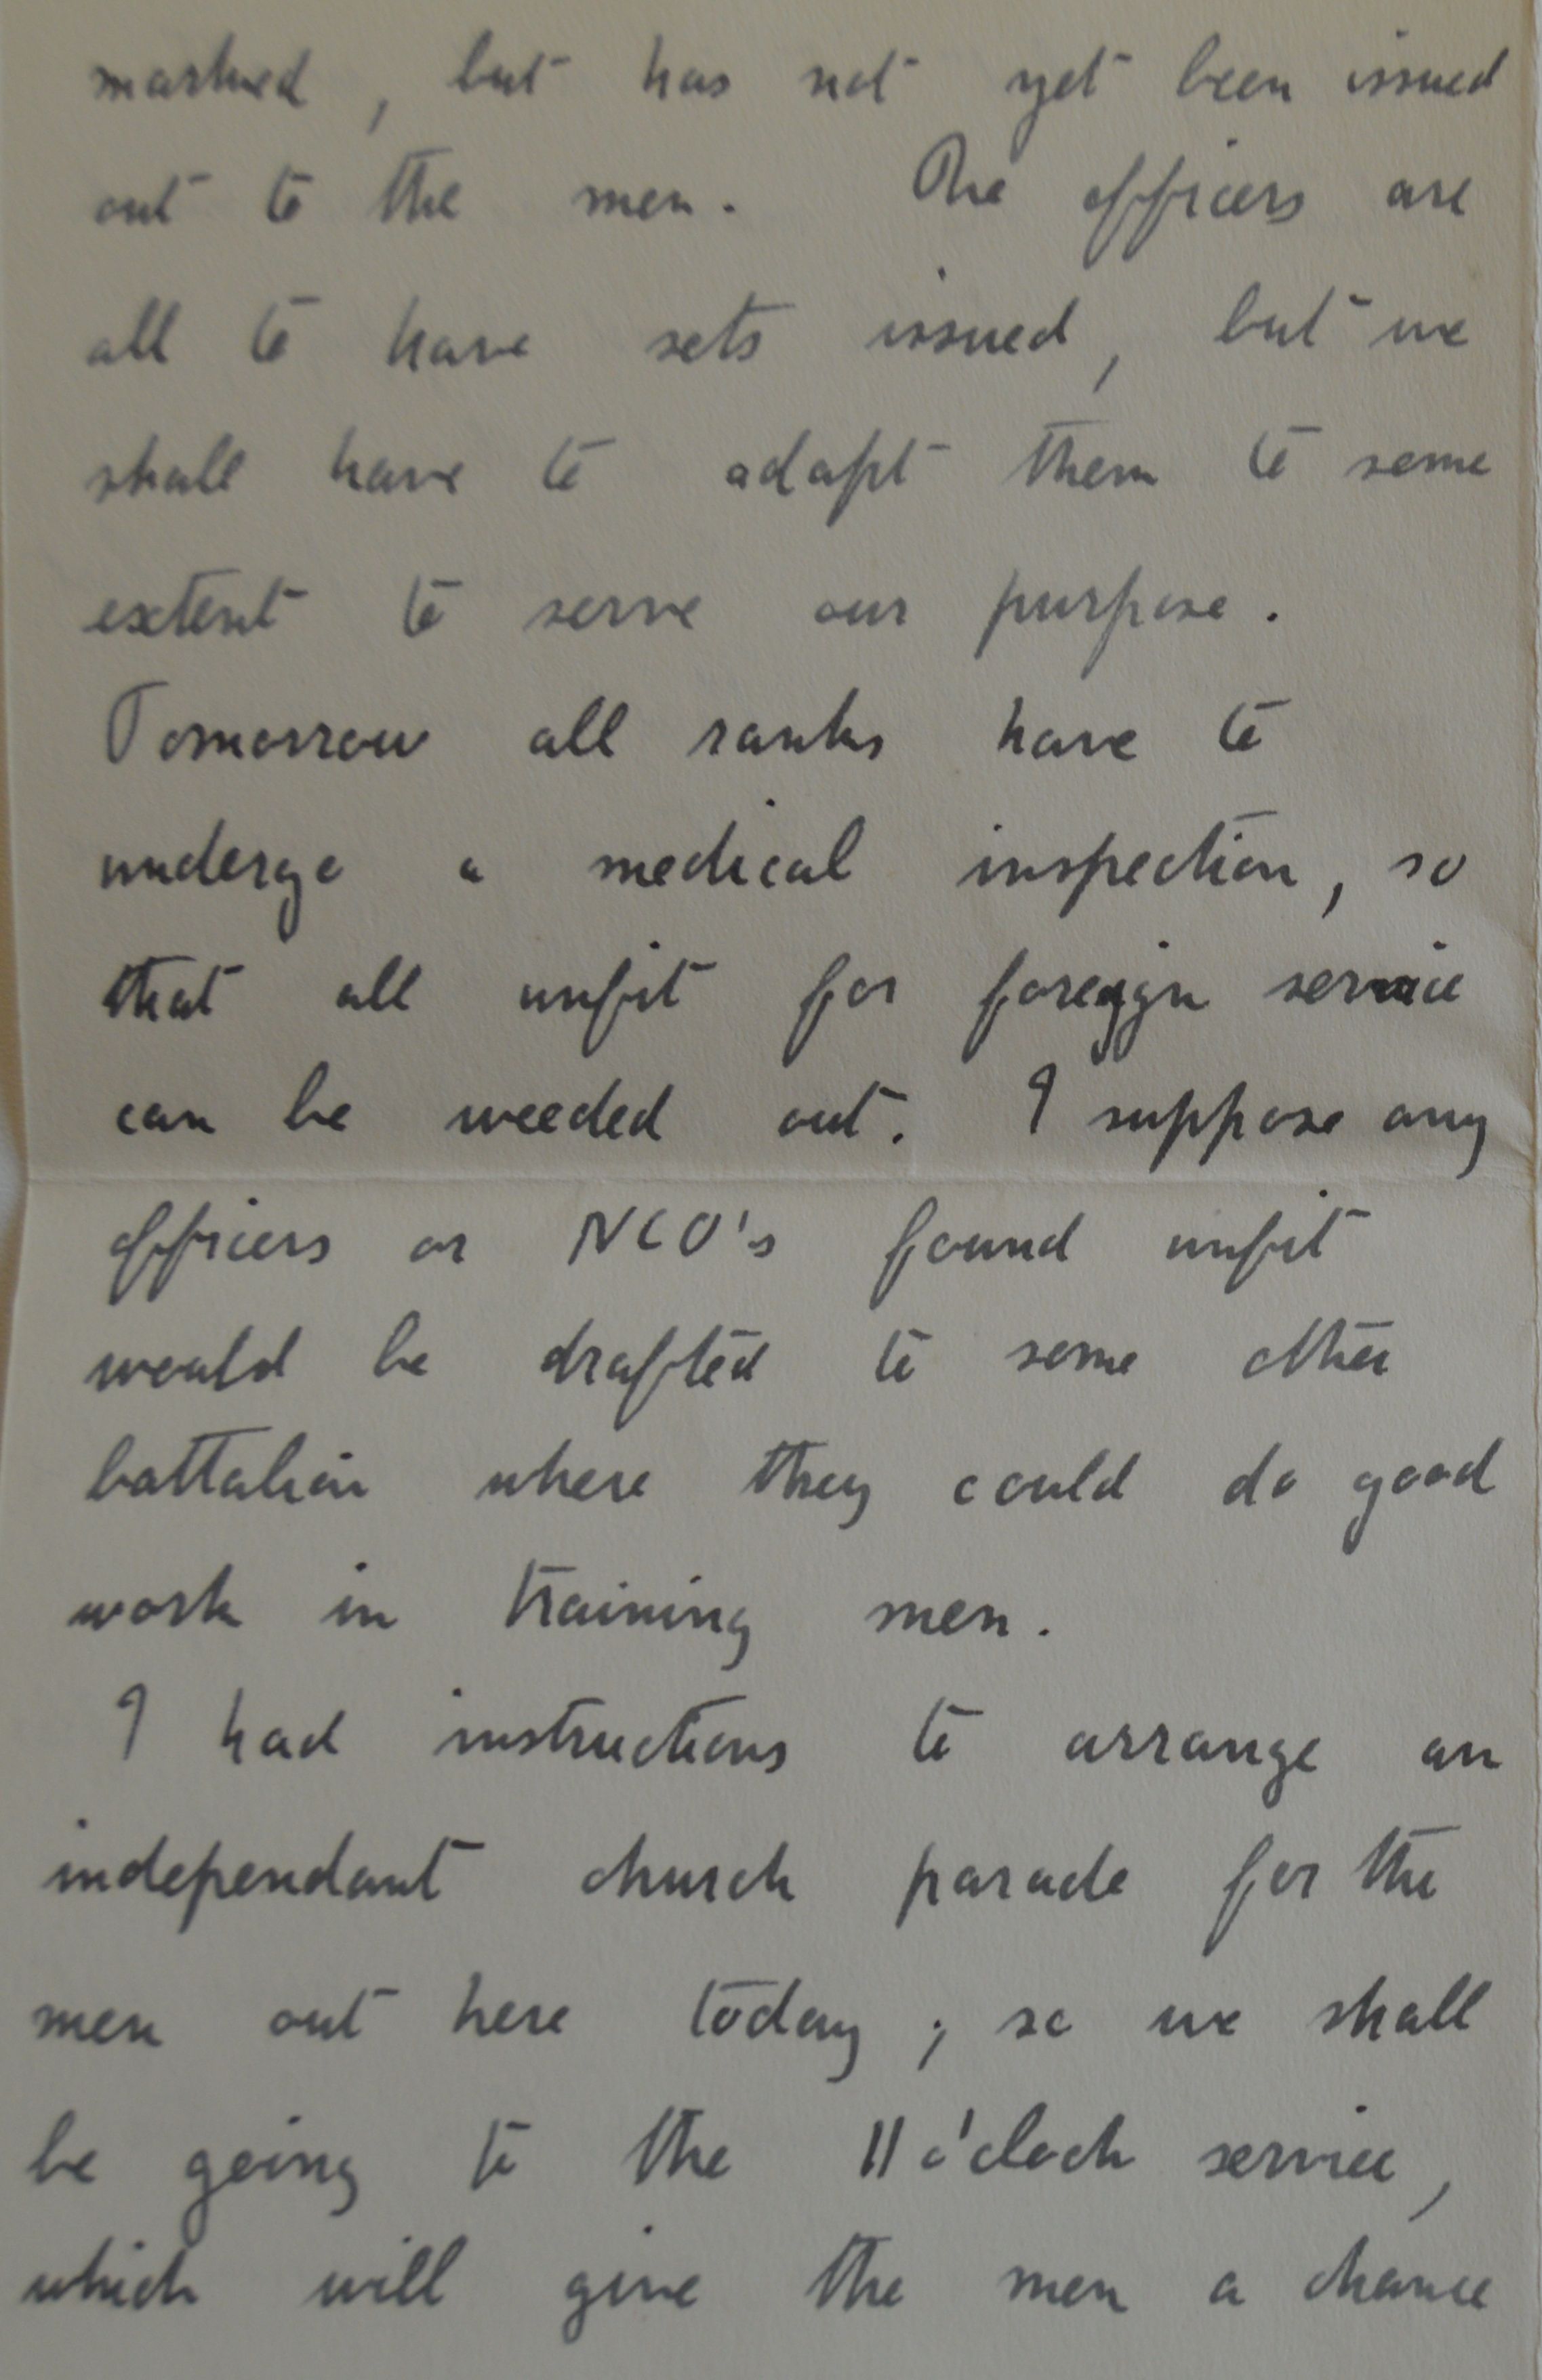 marked, but has not yet been issued
out to the men. The officers are
all to have sets issued, but we
shall have to adapt them to some
extent to serve our purpose.
Tomorrow all ranks have to
undergo a medical inspection, so
that all unfit for foreign service
can be weeded out. I suppose any
officers or NCO's found unfit
would be drafted to some other
battalion where they could do good
work in training men.
I had instructions to arrange an
independant church parade for the
men out here today; so we shall
be going to the 11 o'clock service,
which will give the men a chance